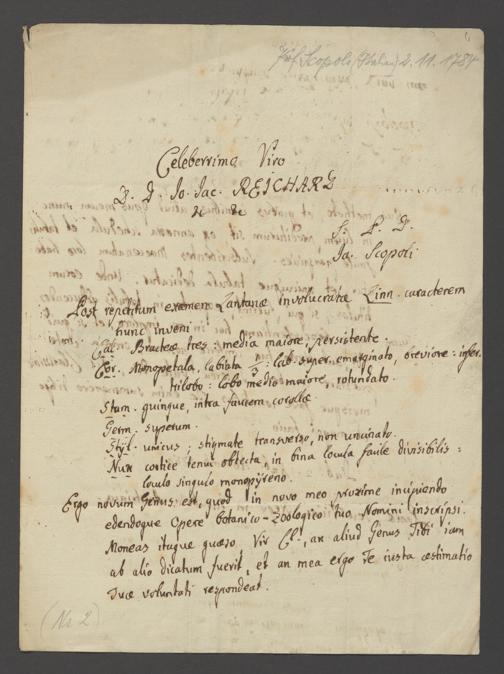 Prof. Scopoli (Italien) 2.11.1784
Celeberrimo Viro
D. D. Jo. Jac. REICHARD
S. P. D.
Ja. Scopoli
Post repetitum examen Lantanæ involucratæ Linn. caracterem
hunc inveni
Cal. Bracteæ tres: media maiore, persistente.
Cor. Monopetala, labiata 2/3: lab. super. emarginato, breviore: infer.
trilobo: lobo medio maiore, rotundato.
Stam. quinque, intra faucem corollæ
Germ. superum.
Styl. unicus; stigmate transverso, non uncinato.
Nux cortice tenui obtecta, in bina locula facile divisibilis:
loculo singulo monopyreno.
Ergo novum Genus est, quod in novo meo proxime incipiendo
edendoque Opere botanico-Zoologico tuo Nomini inscripsi.
Moneas itaque quæso, Vir Cl., an aliud Genus Tibi iam
ab alio dicatum fuerit, et an mea ergo Te iusta æstimatio
Tuæ voluntati respondeat.
(Nr 2)